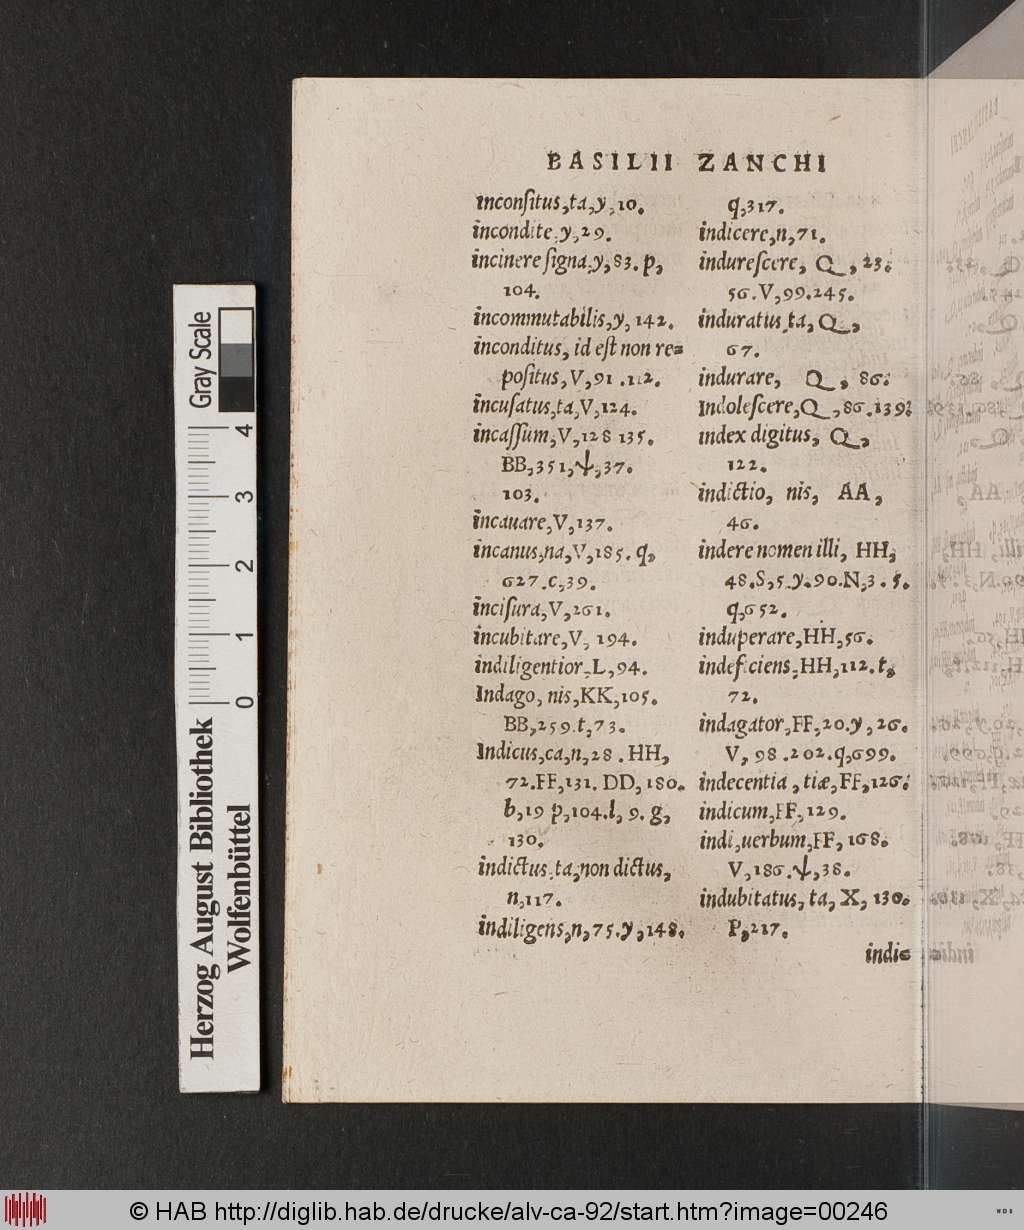 BASILII ZANCHI
inconſitus,ta,y,10.
incondite,y,29.
incinere ſigna,y,83.p,
104.
incommutabilis,y,142.
inconditus, id eſt non re=
poſitus,V,91.112.
incuſatus,ta,V,124.
incaſſum,V,128 135.
BB,351,ψ,37.
103.
incauare,V,137.
incanus,na,V,185.q,
627.c,39.
inciſura,V,261.
incubitare,V, 194.
indiligentior,L,94.
Indago, nis,KK,105.
BB,259.t,73.
Indicus,ca,n,28.HH,
72.FF,131. DD,180.
b,19 p,104.l, 9. g,
130.
indictus,ta,non dictus,
n,117.
indiligens,n,75.y,148.
q,317.
indicere,n,71.
indureſcere, Q, 23.
56.V,99.245.
induratus,ta, Q,
67.
indurare, Q, 86.
Indoleſcere,Q,86.139.
index digitus, Q,
122.
indictio, nis, AA,
46.
indere nomen illi, HH,
48.S,5.y.90.N,3.5.
q,652.
induperare,HH,56.
indeficiens,HH,112.t,
72.
indagator,FF,20.y,26.
V, 98.202.q,699.
indecentia, tiæ,FF,126.
indicum,FF,129.
indi,uerbum,FF, 168.
V,186.ψ,38.
indubitatus, ta, X, 130.
P,217.
indi=
Gray Scale
0 1 2 3 4
Herzog August Bibliothek
Wolfenbüttel
© HAB http://diglib.hab.de/drucke/alv-ca-92/start.htm?image=00246
WDB